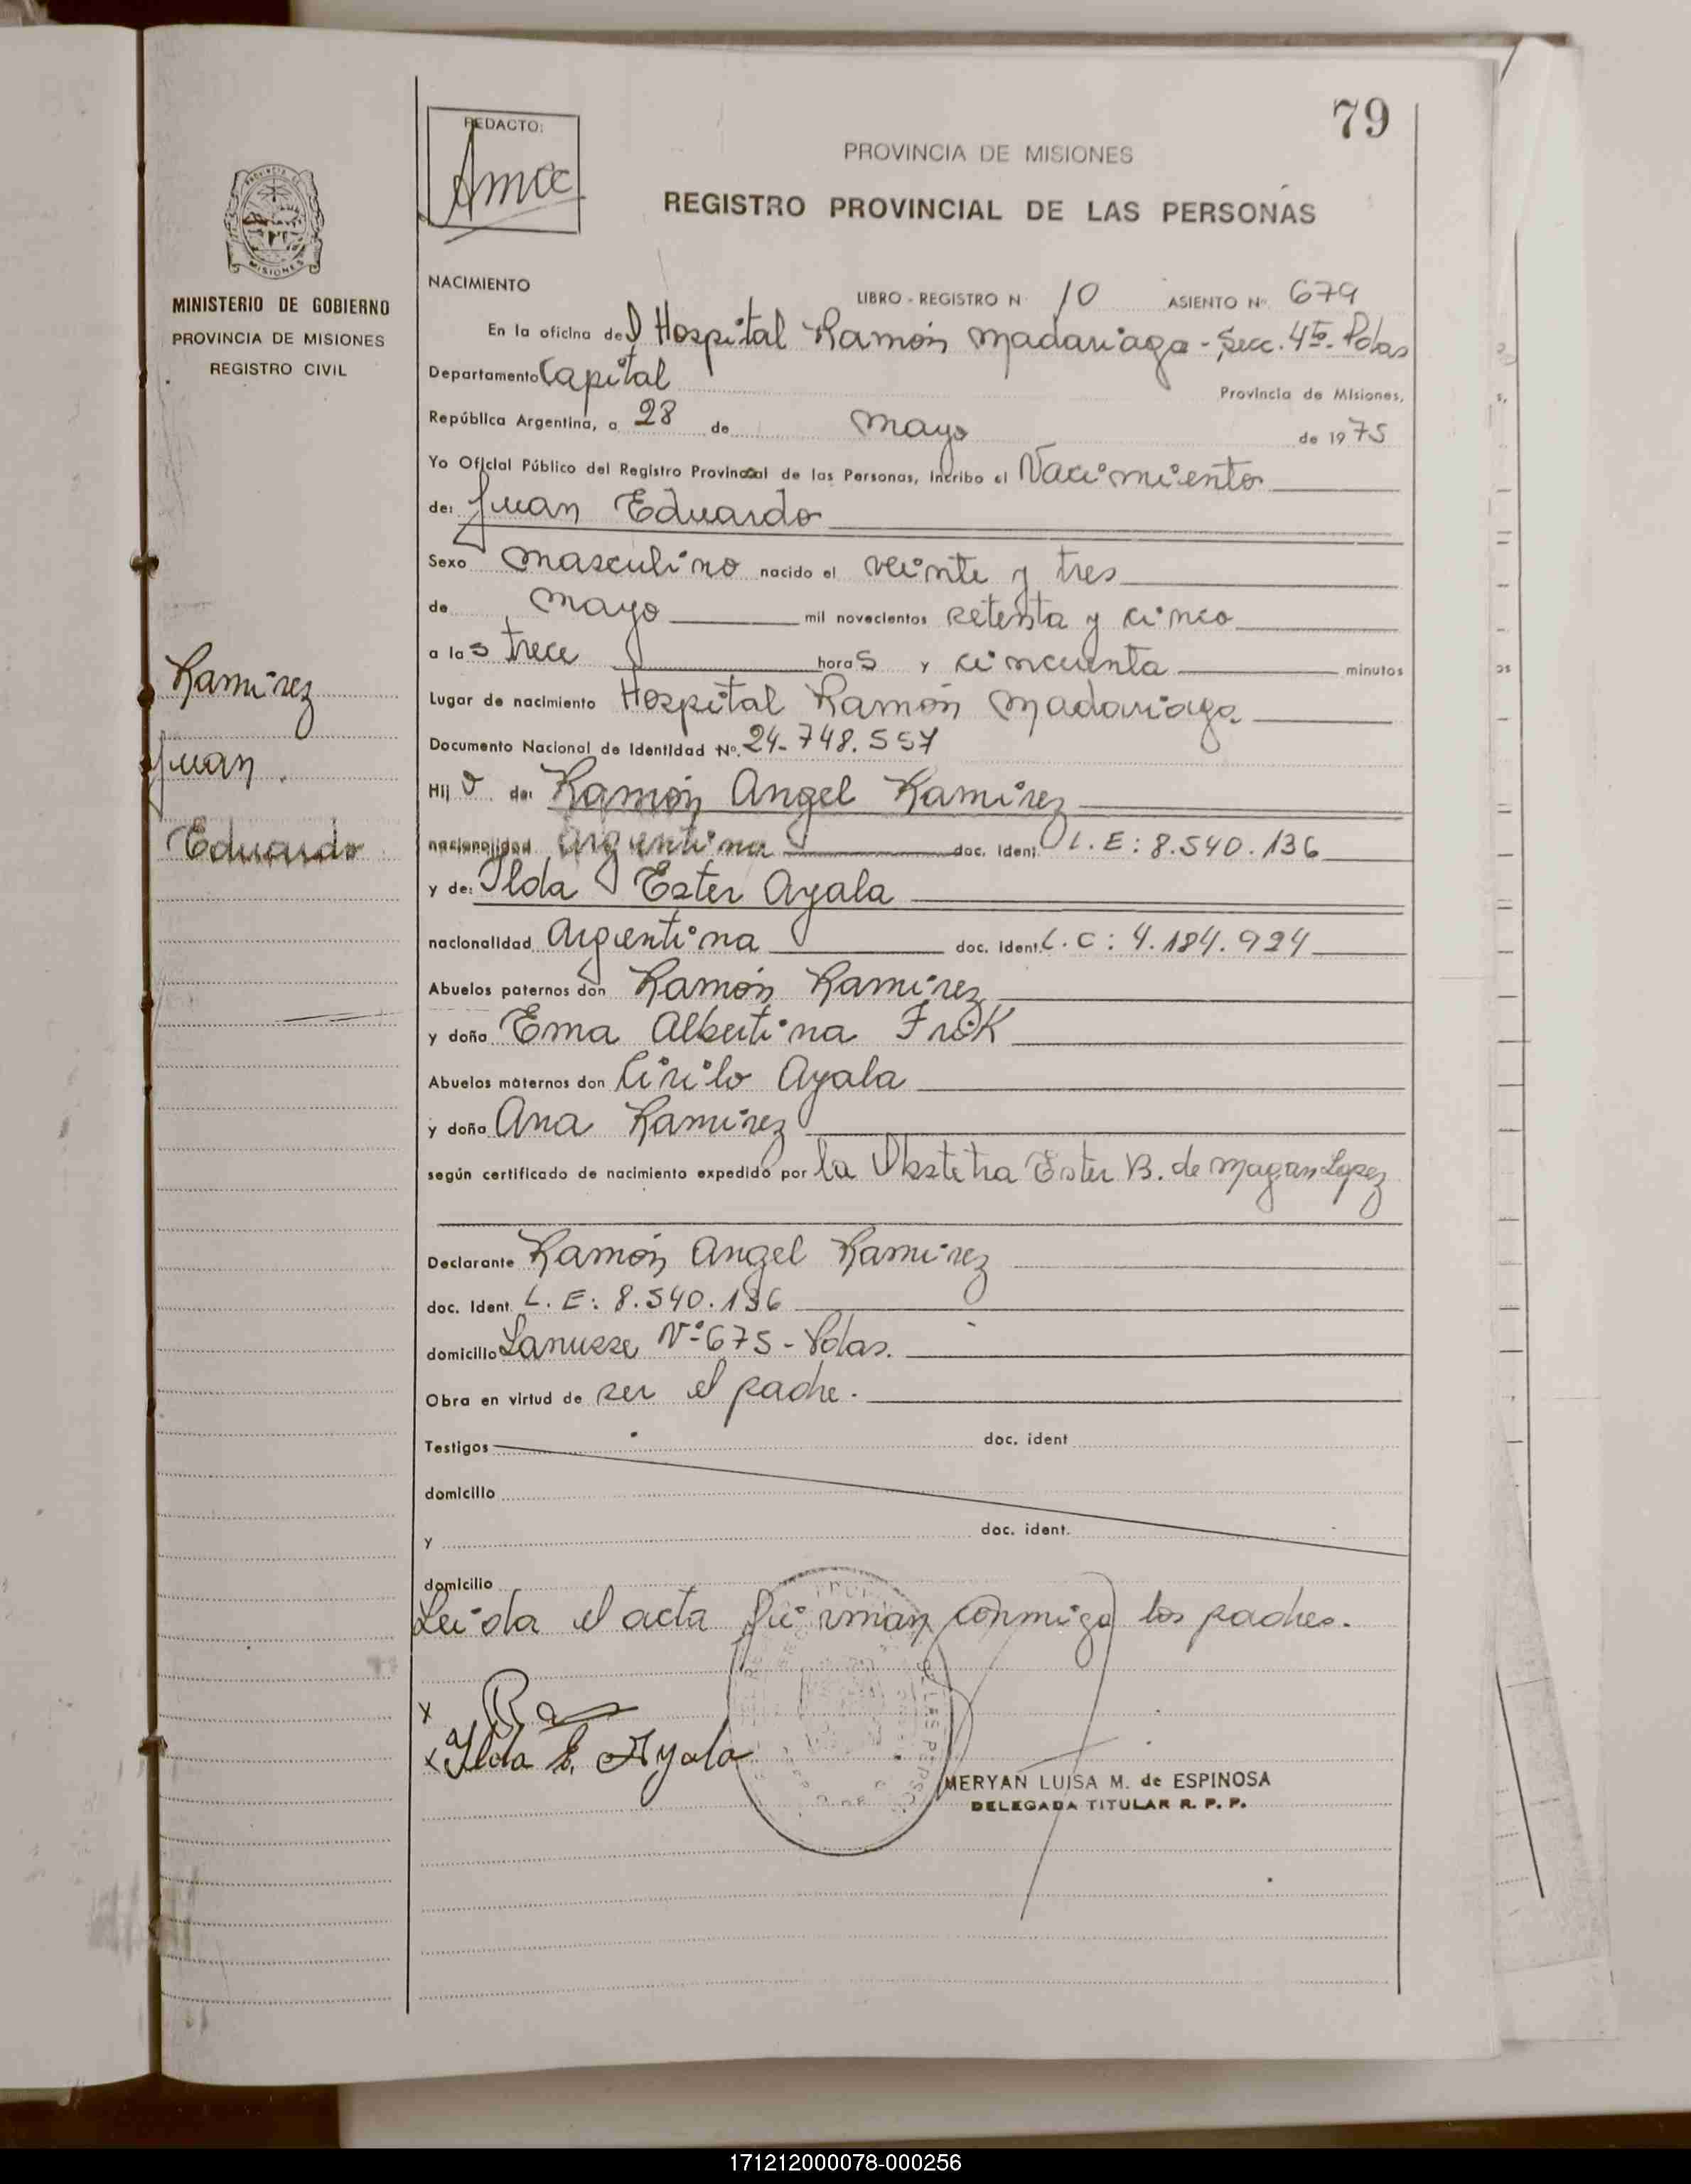 79
REDACTO:
PROVINCIA DE MISIONES
REGISTRO PROVINCIAL DE LAS PERSONAS
MISIONES
MINISTERIO DE GOBIERNO
PROVINCIA DE MISIONES
REGISTRO CIVIL
Ramirez
Juan
Eduardo
NACIMIENTO
LIBRO - REGISTRO N· 10 ASIENTO Nº. 679
En la oficina del Hospital Ramón Madariaga - Secc. 4ta. Pdas
Departamento Capital Provincia de Misiones,
República Argentina, a 28 de mayo de 1975
Yo Oficial Público del Registro Provincial de las Personas, incribo el Nacimiento
de: Juan Eduardo
Sexo masculino nacido el veinte y tres
de mayo mil novecientos setenta y cinco
a las trece horas y cincuenta minutos
Lugar de nacimiento Hospital Ramón Madariaga
Documento Nacional de Identidad Nº. 24-748.557
Hijo de: Ramón Angel Ramirez
nacionalidad argentina doc. Ident. L.E: 8.540.136
y de: Ilda Ester Ayala
nacionalidad Argentina doc. Ident. L.C: 4.184.924
Abuelos paternos don Ramón Ramirez
y doña Ema Albertina
Abuelos maternos don Cirilo Ayala
y doña Ana Ramirez
según certificado de nacimiento expedido por la Obstetra Ester B. de Magan Lopez
Declarante Ramón Angel Ramirez
doc. Ident. L.E: 8.540.136
domicilio Lanusse Nº 675 - Pdas.
Obra en virtud de ser el padre.
Testigos doc. ident
domicilio
y doc. ident.
domicilio
Leida el acta firman conmigo los padres.
x
x Ilda E. Ayala
MERYAN LUISA M. de ESPINOSA
DELEGADA TITULAR R. P. P.
171212000078-000256